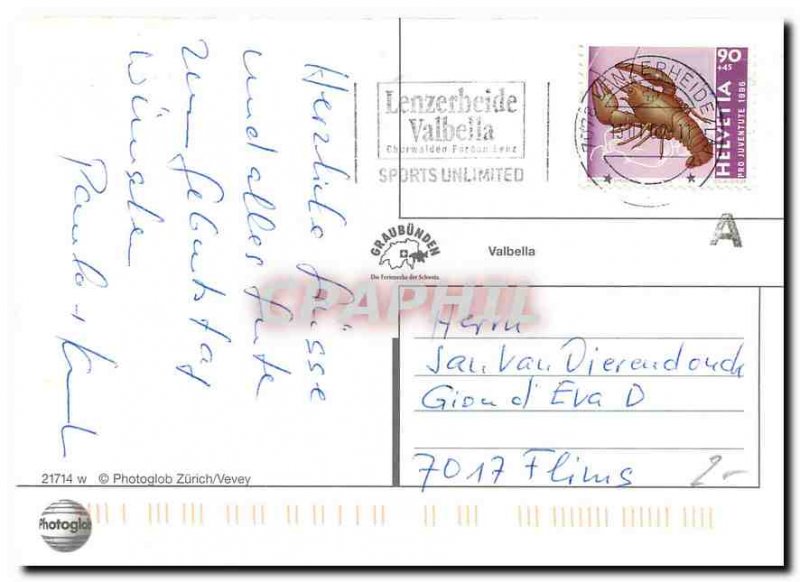 Herzliche Grüsse
und alles Gute
zum Geburtstag
wünschen
Paula +
Lenzerheide
Valbella
Churwalden Parpan Lenz
SPORTS UNLIMITED
90
+45
HELVETIA
PRO JUVENTUTE 1996
LENZERHEIDE
A
GRAUBÜNDEN
Die Ferienecke der Schweiz.
Valbella
CPAPHIL
Herrn
Jan Van Dierendonck
Gion d'Eva D
7017 Flims
2.-
21714 w © Photoglob Zürich/Vevey
Photoglob